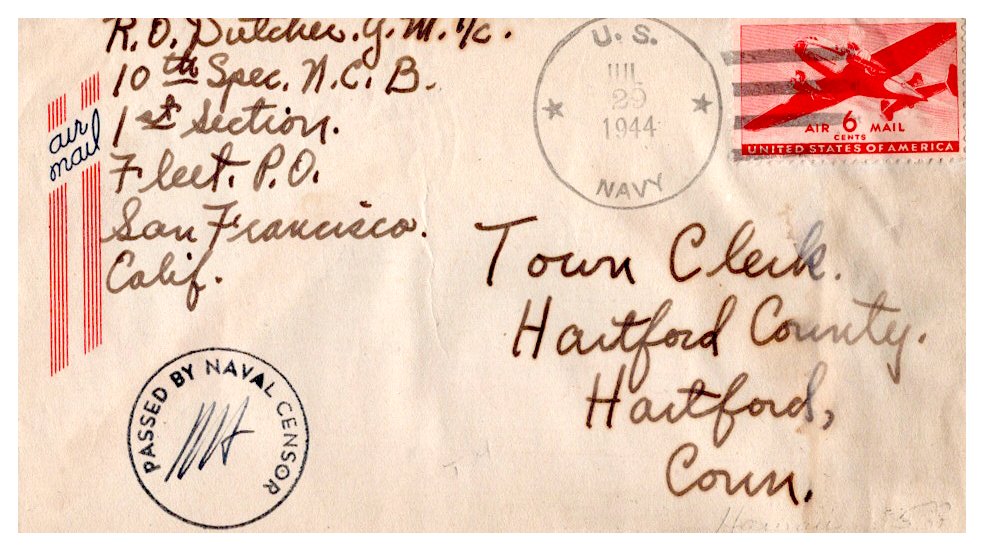 R. O. Dutcher. G. M. 1/c.
10th Spec. N. C. B.
1st Section.
Fleet. P.O.
San Francisco.
Calif.
air
mail
U. S.
JUL
29
1944
NAVY
AIR 6 MAIL
CENTS
UNITED STATES OF AMERICA
Town Clerk.
Hartford County.
Hartford,
Conn.
PASSED BY NAVAL CENSOR